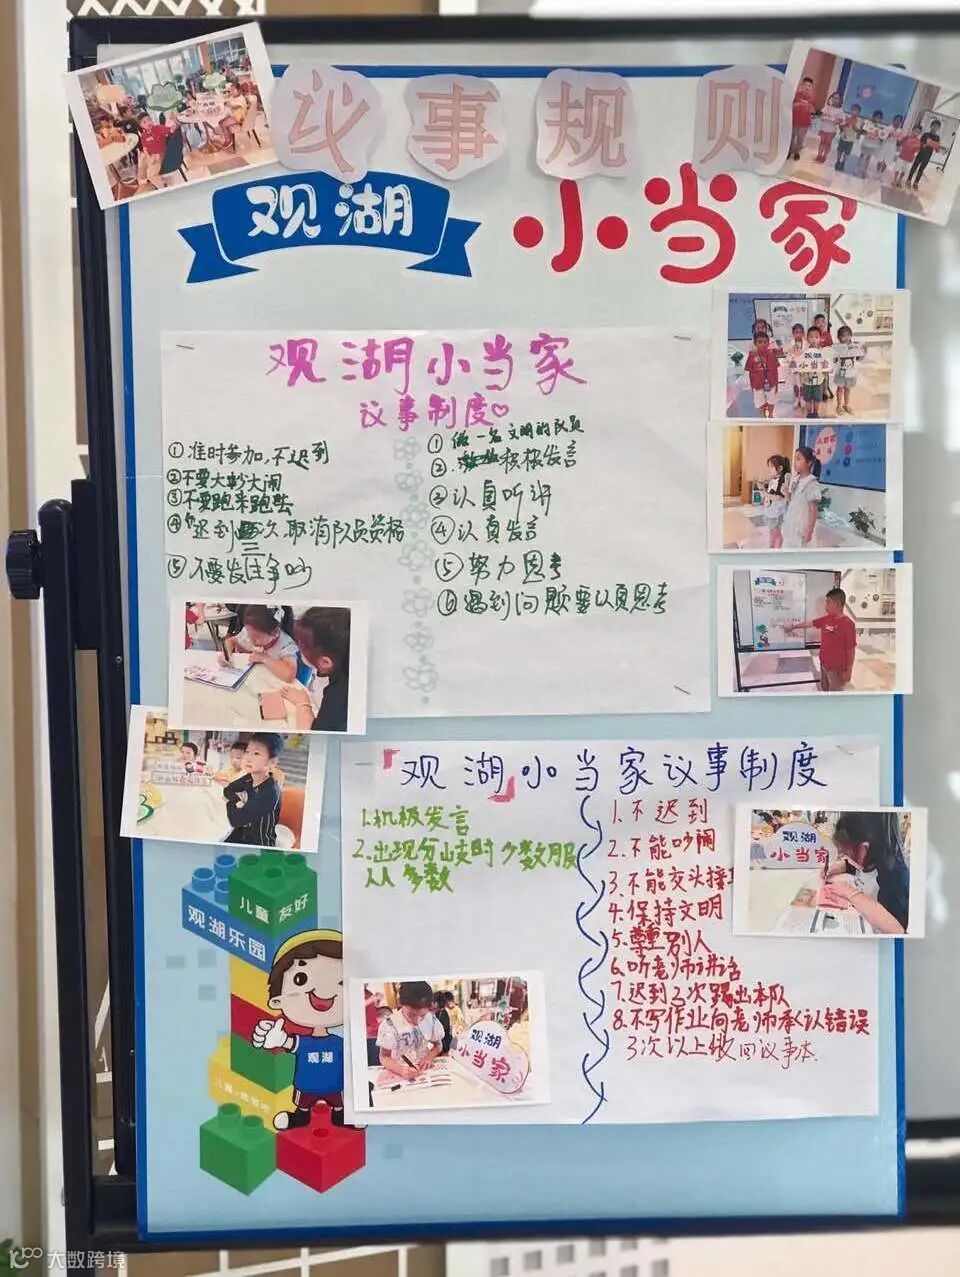 议事规则
观湖
小当家
观湖小当家
议事制度
①准时参加,不迟到
②不要大吵大闹
③不要跑来跑去
④迟到三次,取消队员资格
⑤不要发生争吵
①做一名文明的队员
②积极发言
③认真听讲
④认真发言
⑤努力思考
⑥遇到问题要认真思考
『观湖』小当家议事制度
1.积极发言
2.出现分歧时少数服
从多数
1.不迟到
2.不能吵闹
3.不能交头接
4.保持文明
5.尊重别人
6.听老师讲话
7.迟到3次踢出本队
8.不写作业向老师承认错误
3次以上缴回议事本.
观湖
小当家
观湖
小当家
观湖
小当家
儿童友好
观湖乐园
观湖
大数跨境